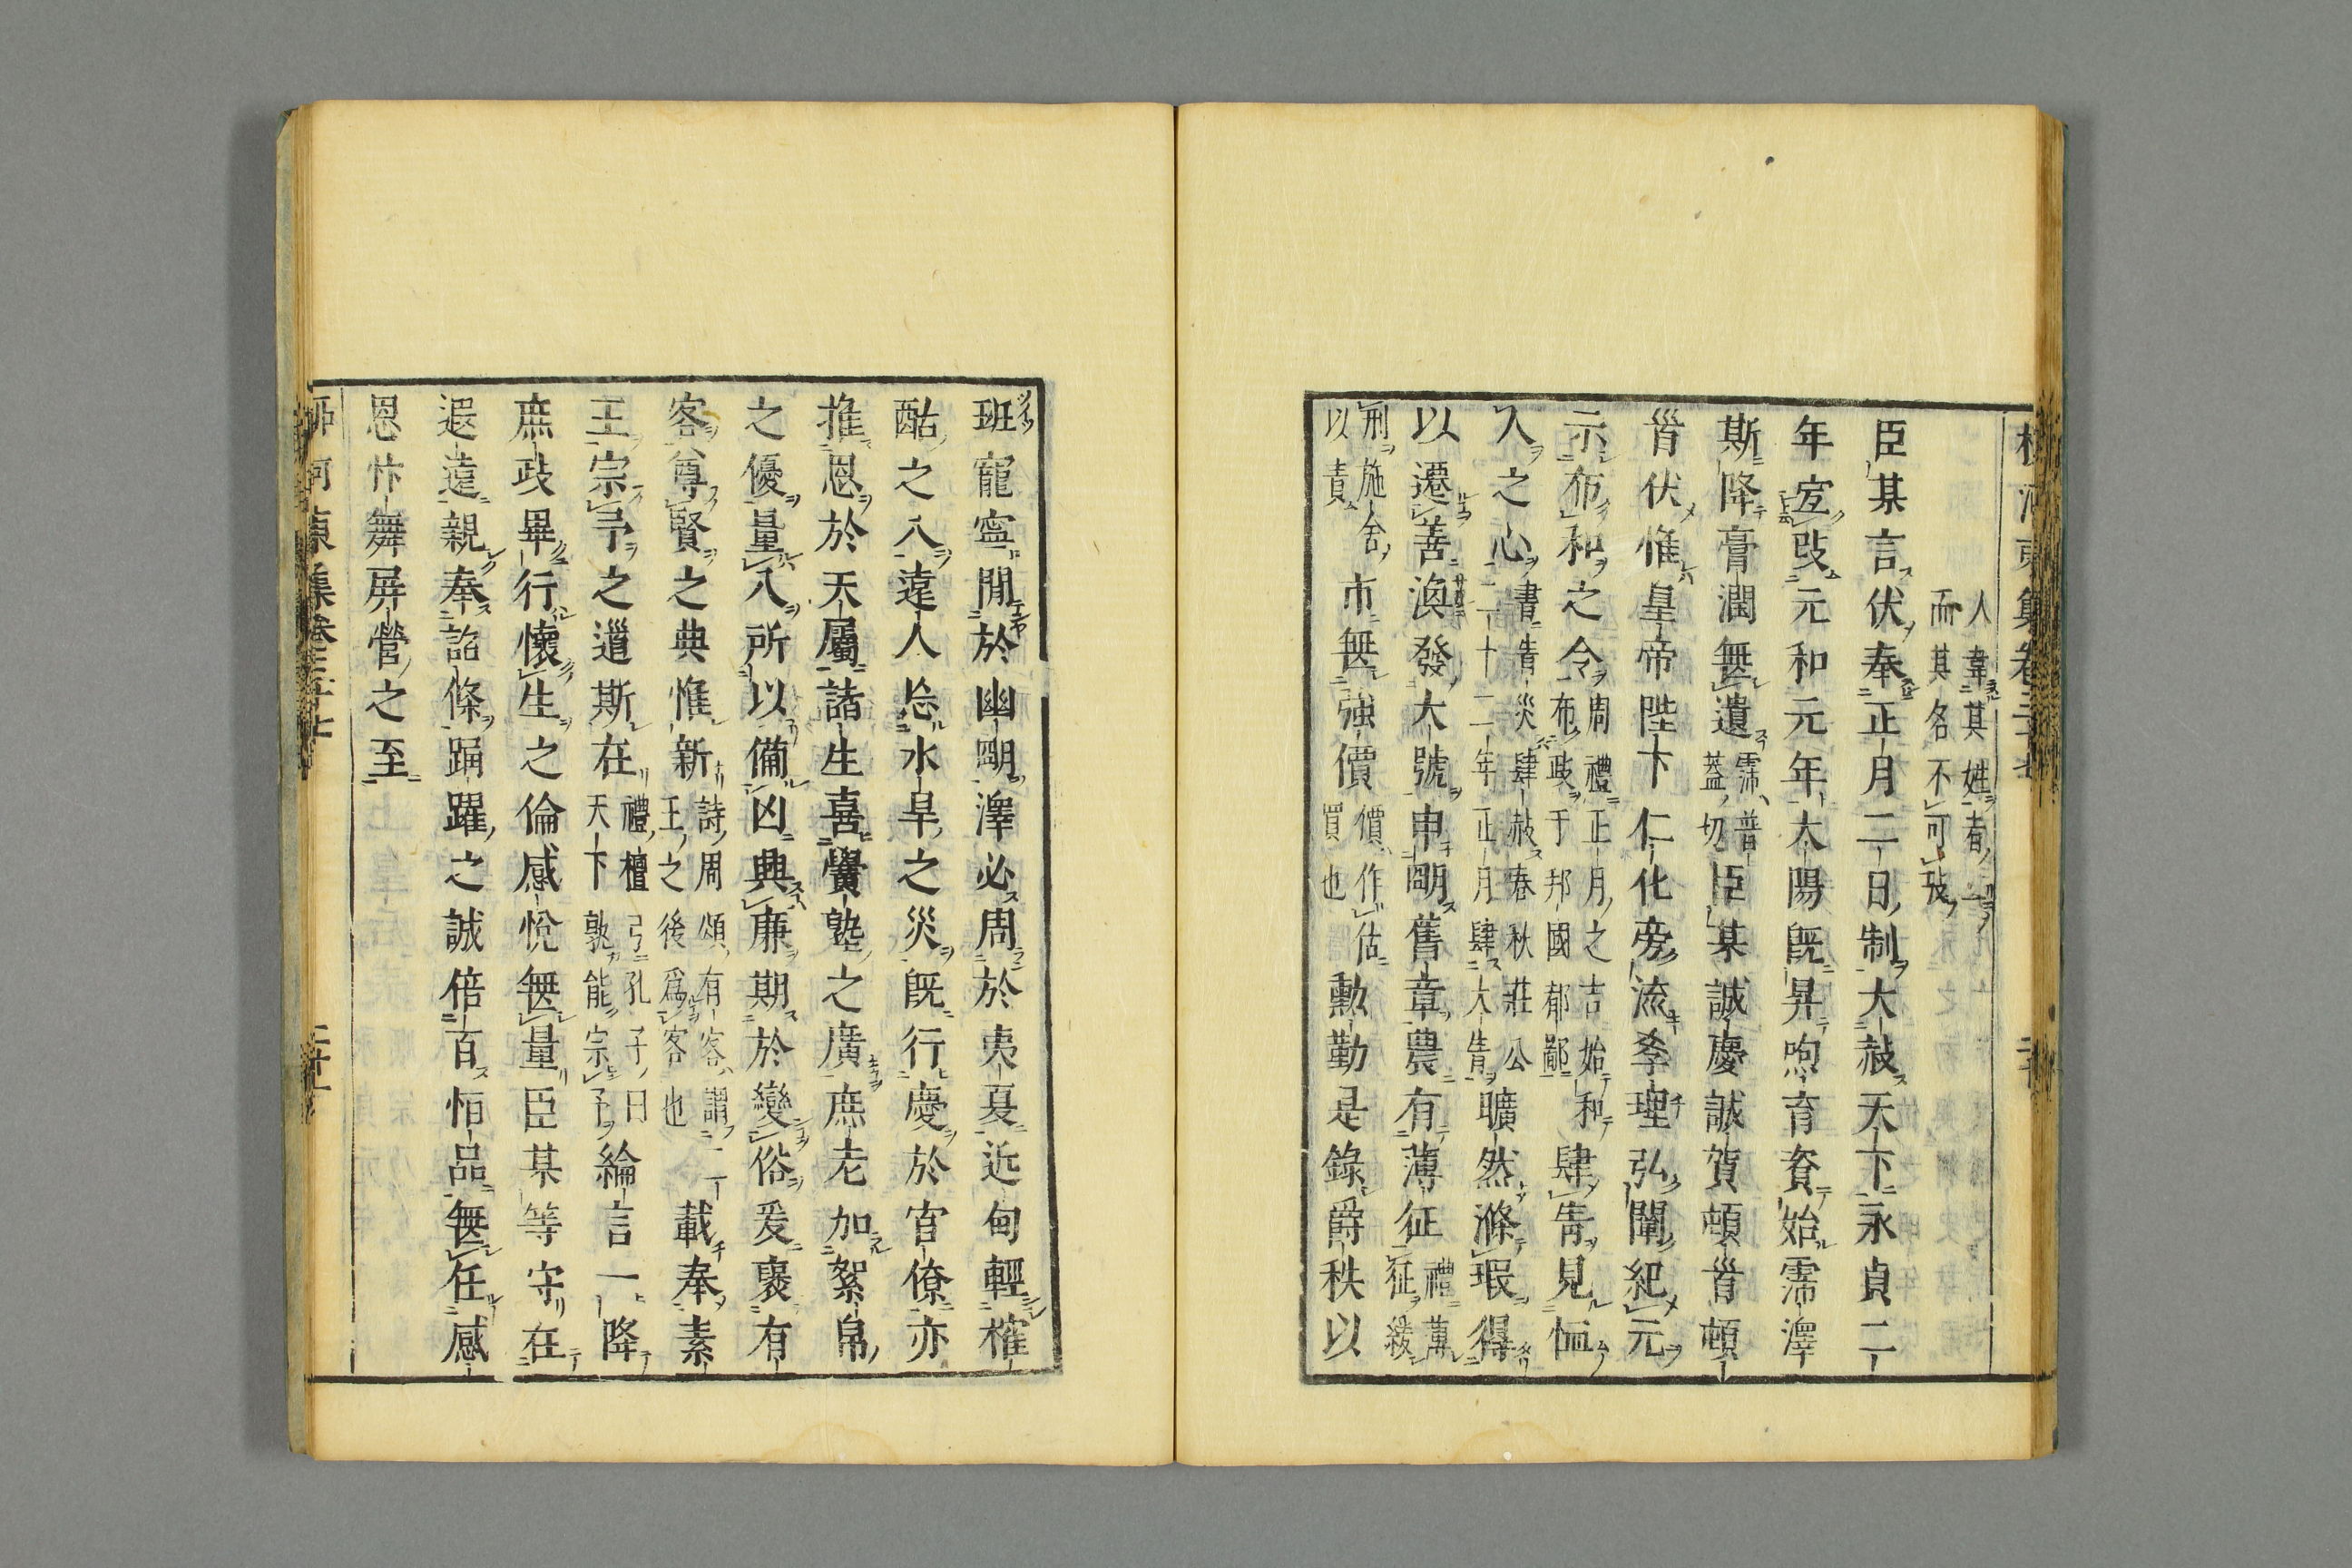 人韋其姓者
而其名不可攷
臣某言伏奉正月二日制大赦天下永貞二
年宜改元和元年太陽既昇煦育資始霈澤
斯降膏潤無遺霈普蓋切臣某誠慶誠賀頓首頓
首伏惟皇帝陛下仁化旁流孝理弘闡紀元
示布和之令周禮正月之吉始和布政于邦國都鄙肆眚見恤
人之心書眚災肆赦春秋莊公二十二年正月肆大眚曠然滌瑕得
以遷善渙發大號申明舊章農有薄征禮薄征緩
刑施舍以責市無強價價作估買也勲勤是錄爵秩以
班寵寧間於幽明澤必周於夷夏近甸輕榷
酤之入遠人忘水旱之災既行慶於官僚亦
推恩於天屬諸生喜黌塾之廣庶老加絮帛
之優量入所以備凶興廉期於變俗爰褒有
客尊賢之典惟新詩周頌有客謂二王之後爲客也載奉素
王宗予之道斯在禮檀弓孔子曰天下孰能宗予綸言一降
庶政畢行懷生之倫感悅無量臣某等守在
遐遠親奉詔條踊躍之誠倍百恒品無任感
恩忭舞屏營之至
河東集卷三十七